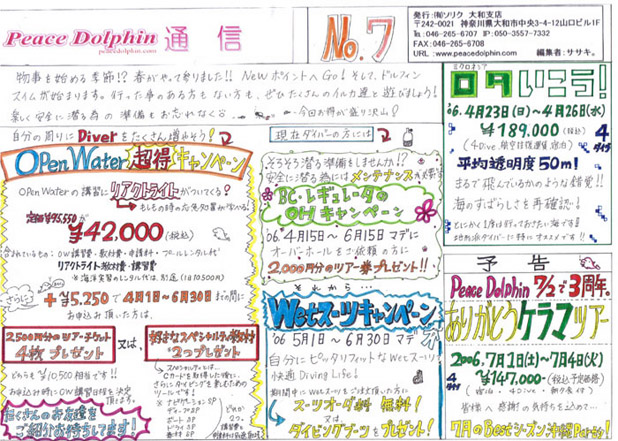 Peace Dolphin 通信
peacedolphin.com
No.7
発行:㈲ソリク 大和支店
〒242-0021 神奈川県大和市中央3-4-12山口ビル1F
Tel:046-265-6707 IP:050-3557-7332
FAX:046-265-6708
URL:www.peacedolphin.com 編集者:ササキ。
物事を始める季節!? 春がやって参りました!! NewポイントへGo! そして、ドルフィン
スイムが始まります。行った事のある方も ない方も、ぜひたくさんのイルカ達と遊びましょう!
楽しく安全に潜る為の準備もお忘れなく
今回お得が盛り沢山!
自分の周りにDiverをたくさん増やそう!
Open Water 超得キャンペーン
Open Waterの講習にリアクトライトがついてくる!
もしもの時の応急処置が学べる!
定価¥95,550が
¥42,000(税込)
含まれているもの:OW講習・教材費・申請料・プールレンタル代
リアクトライト教材費・講習費
※海洋実習のレンタル代は、別途(1日10500円)
さらに
+¥5,250で4月1日~6月30日までの間に
お申込み頂いた方は、
2500円分のツアーチケット
4枚プレゼント
又は
好きなスペシャルティ教材
2つプレゼント
どちらも¥10500相当です!!
お申込み時にOW講習日程を決定
たくさんのお友達を
ご紹介お待ちしてます!
スペシャルティとは
Cカードを取得した後に、
さらにダイビングを楽しむための
ツールです!
現在ダイバーの方には
そろそろ潜る準備もしませんか!?
安全に潜る為にはメンテナンスも必要
BC・レギュレータの
OHキャンペーン
'06 4月15日~6月15日マデに
オーバーホールをご依頼の方に
2,000円分のツアー券プレゼント!!
それから…
Wetスーツキャンペーン
'06 5月1日~6月30日マデ
自分にピッタリフィットなWetスーツで
快適Diving Life!
期間中にWetスーツをご注文頂いた方に
スーツオーダー料 無料!
又は
ダイビングブーツをプレゼント!
ミクロネシア
ロタいこう!
'06.4月23日(日)~4月26日(水)
¥189,000(税込)
4ダイブ
(4Dive・航空券・保護費・宿泊)
平均透明度50m!
まるで飛んでいるかのような錯覚!!
海のすばらしさを再確認!
とにかく1度は行っておきたい海です!
幼児派ダイバーに特にオススメです!!
予告
Peace Dolphin 7/2で3周年。
ありがとうケラマツアー
2006.7月1日(土)~7月4日(火)
4ダイブ
¥147,000-(税込・予定価格)
皆様へ感謝の気持ちを込めて…
7月のBestシーズン沖縄Partyを!